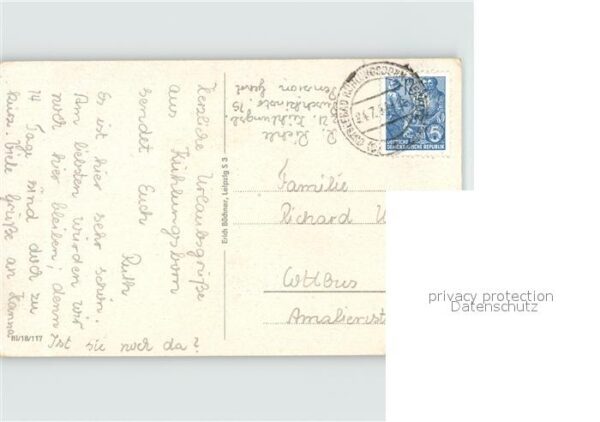 Herzliche Urlaubsgrüße
aus Kühlungsborn
sendet Euch
Ruth
Es ist hier sehr schön.
Am liebsten würden wir
noch hier bleiben, denn
14 Tage sind doch zu
kurz. Viele Grüße an Hanna
Ist sie noch da?
III/18/117
Erich Böhmer, Leipzig S 3
Kühlungsb.
Pension
DEUTSCHE
DEMOKRATISCHE REPUBLIK
Familie
Richard
Cottbus
privacy protection
Datenschutz